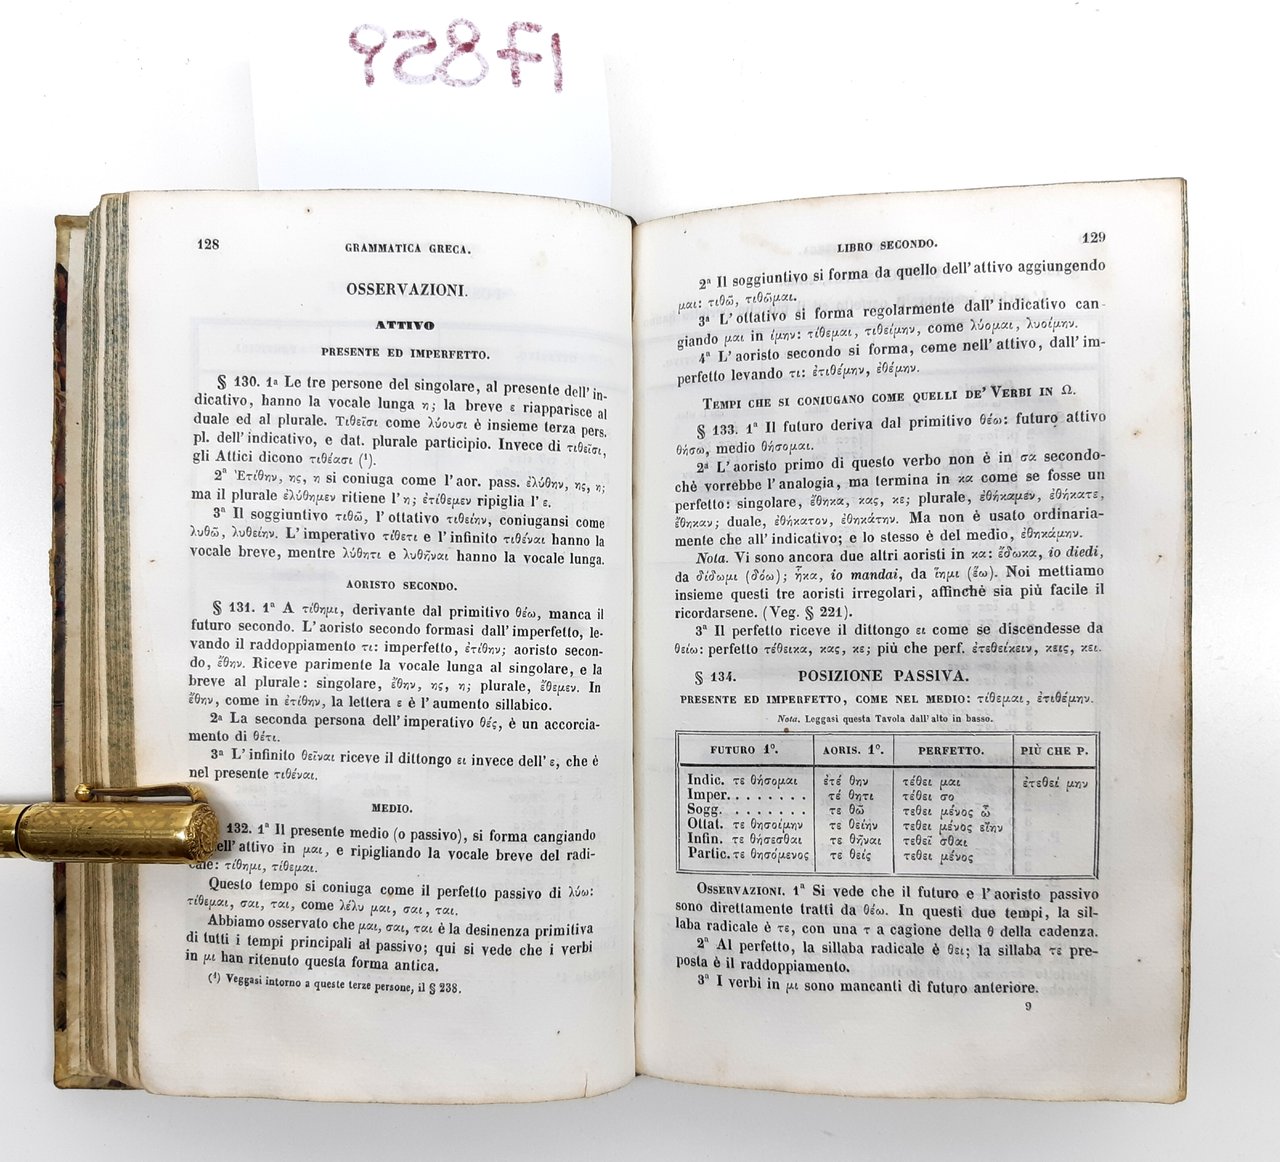 128
GRAMMATICA GRECA.
OSSERVAZIONI.
ATTIVO
PRESENTE ED IMPERFETTO.
§ 130. 1ª Le tre persone del singolare, al presente dell'in-
dicativo, hanno la vocale lunga η; la breve ε riapparisce al
duale ed al plurale. Τιθεῖσι come λύουσι è insieme terza pers.
pl. dell'indicativo, e dat. plurale participio. Invece di τιθεῖσι,
gli Attici dicono τιθέασι (¹).
2ª Ἐτίθην, ης, η si coniuga come l'aor. pass. ἐλύθην, ης, η;
ma il plurale ἐλύθημεν ritiene l'η; ἐτίθεμεν ripiglia l'ε.
3ª Il soggiuntivo τιθῶ, l'ottativo τιθείην, coniugansi come
λυθῶ, λυθείην. L'imperativo τίθετι e l'infinito τιθέναι hanno la
vocale breve, mentre λύθητι e λυθῆναι hanno la vocale lunga.
AORISTO SECONDO.
§ 131. 1ª A τίθημι, derivante dal primitivo θέω, manca il
futuro secondo. L'aoristo secondo formasi dall'imperfetto, le-
vando il raddoppiamento τι: imperfetto, ἐτίθην; aoristo secon-
do, ἔθην. Riceve parimente la vocale lunga al singolare, e la
breve al plurale: singolare, ἔθην, ης, η; plurale, ἔθεμεν. In
ἔθην, come in ἐτίθην, la lettera ε è l'aumento sillabico.
2ª La seconda persona dell'imperativo θές, è un accorcia-
mento di θέτι.
3ª L'infinito θεῖναι riceve il dittongo ει invece dell'ε, che è
nel presente τιθέναι.
MEDIO.
132. 1ª Il presente medio (o passivo), si forma cangiando
ell'attivo in μαι, e ripigliando la vocale breve del radi-
cale: τίθημι, τίθεμαι.
Questo tempo si coniuga come il perfetto passivo di λύω:
τίθεμαι, σαι, ται, come λέλυ μαι, σαι, ται.
Abbiamo osservato che μαι, σαι, ται è la desinenza primitiva
di tutti i tempi principali al passivo; qui si vede che i verbi
in μι han ritenuto questa forma antica.
(¹) Veggasi intorno a queste terze persone, il § 238.
LIBRO SECONDO.
129
2ª Il soggiuntivo si forma da quello dell'attivo aggiungendo
μαι: τιθῶ, τιθῶμαι.
3ª L'ottativo si forma regolarmente dall'indicativo can-
giando μαι in ίμην: τίθεμαι, τιθείμην, come λύομαι, λυοίμην.
4ª L'aoristo secondo si forma, come nell'attivo, dall'im-
perfetto levando τι: ἐτιθέμην, ἐθέμην.
TEMPI CHE SI CONIUGANO COME QUELLI DE' VERBI IN Ω.
§ 133. 1ª Il futuro deriva dal primitivo θέω: futuro attivo
θήσω, medio θήσομαι.
2ª L'aoristo primo di questo verbo non è in σα secondo-
chè vorrebbe l'analogia, ma termina in κα come se fosse un
perfetto: singolare, ἔθηκα, κας, κε; plurale, ἐθήκαμέν, ἐθήκατε,
ἔθηκαν; duale, ἐθήκατον, ἐθηκάτην. Ma non è usato ordinaria-
mente che all'indicativo; e lo stesso è del medio, ἐθηκάμην.
Nota. Vi sono ancora due altri aoristi in κα: ἔδωκα, io diedi,
da δίδωμι (δόω); ἧκα, io mandai, da ἵημι (ἕω). Noi mettiamo
insieme questi tre aoristi irregolari, affinchè sia più facile il
ricordarsene. (Veg. § 221).
3ª Il perfetto riceve il dittongo ει come se discendesse da
θείω: perfetto τέθεικα, κας, κε; più che perf. ἐτεθείκειν, κεις, κει.
§ 134. POSIZIONE PASSIVA.
PRESENTE ED IMPERFETTO, COME NEL MEDIO: τίθεμαι, ἐτιθέμην.
Nota. Leggasi questa Tavola dall'alto in basso.
FUTURO 1º. AORIS. 1º. PERFETTO. PIÙ CHE P.
Indic. τε θήσομαι ἐτέ θην τέθει μαι ἐτεθεί μην
Imper. . . . . . . . τέ θητι τέθει σο
Sogg. . . . . . . . τε θῶ τεθει μένος ὦ
Ottat. τε θησοίμην τε θείην τεθει μένος εἴην
Infin. τε θήσεσθαι τε θῆναι τεθεῖ σθαι
Partic. τε θησόμενος τε θείς τεθει μένος
OSSERVAZIONI. 1ª Si vede che il futuro e l'aoristo passivo
sono direttamente tratti da θέω. In questi due tempi, la sil-
laba radicale è τε, con una τ a cagione della θ della cadenza.
2ª Al perfetto, la sillaba radicale è θει; la sillaba τε pre-
posta è il raddoppiamento.
3ª I verbi in μι sono mancanti di futuro anteriore.
9